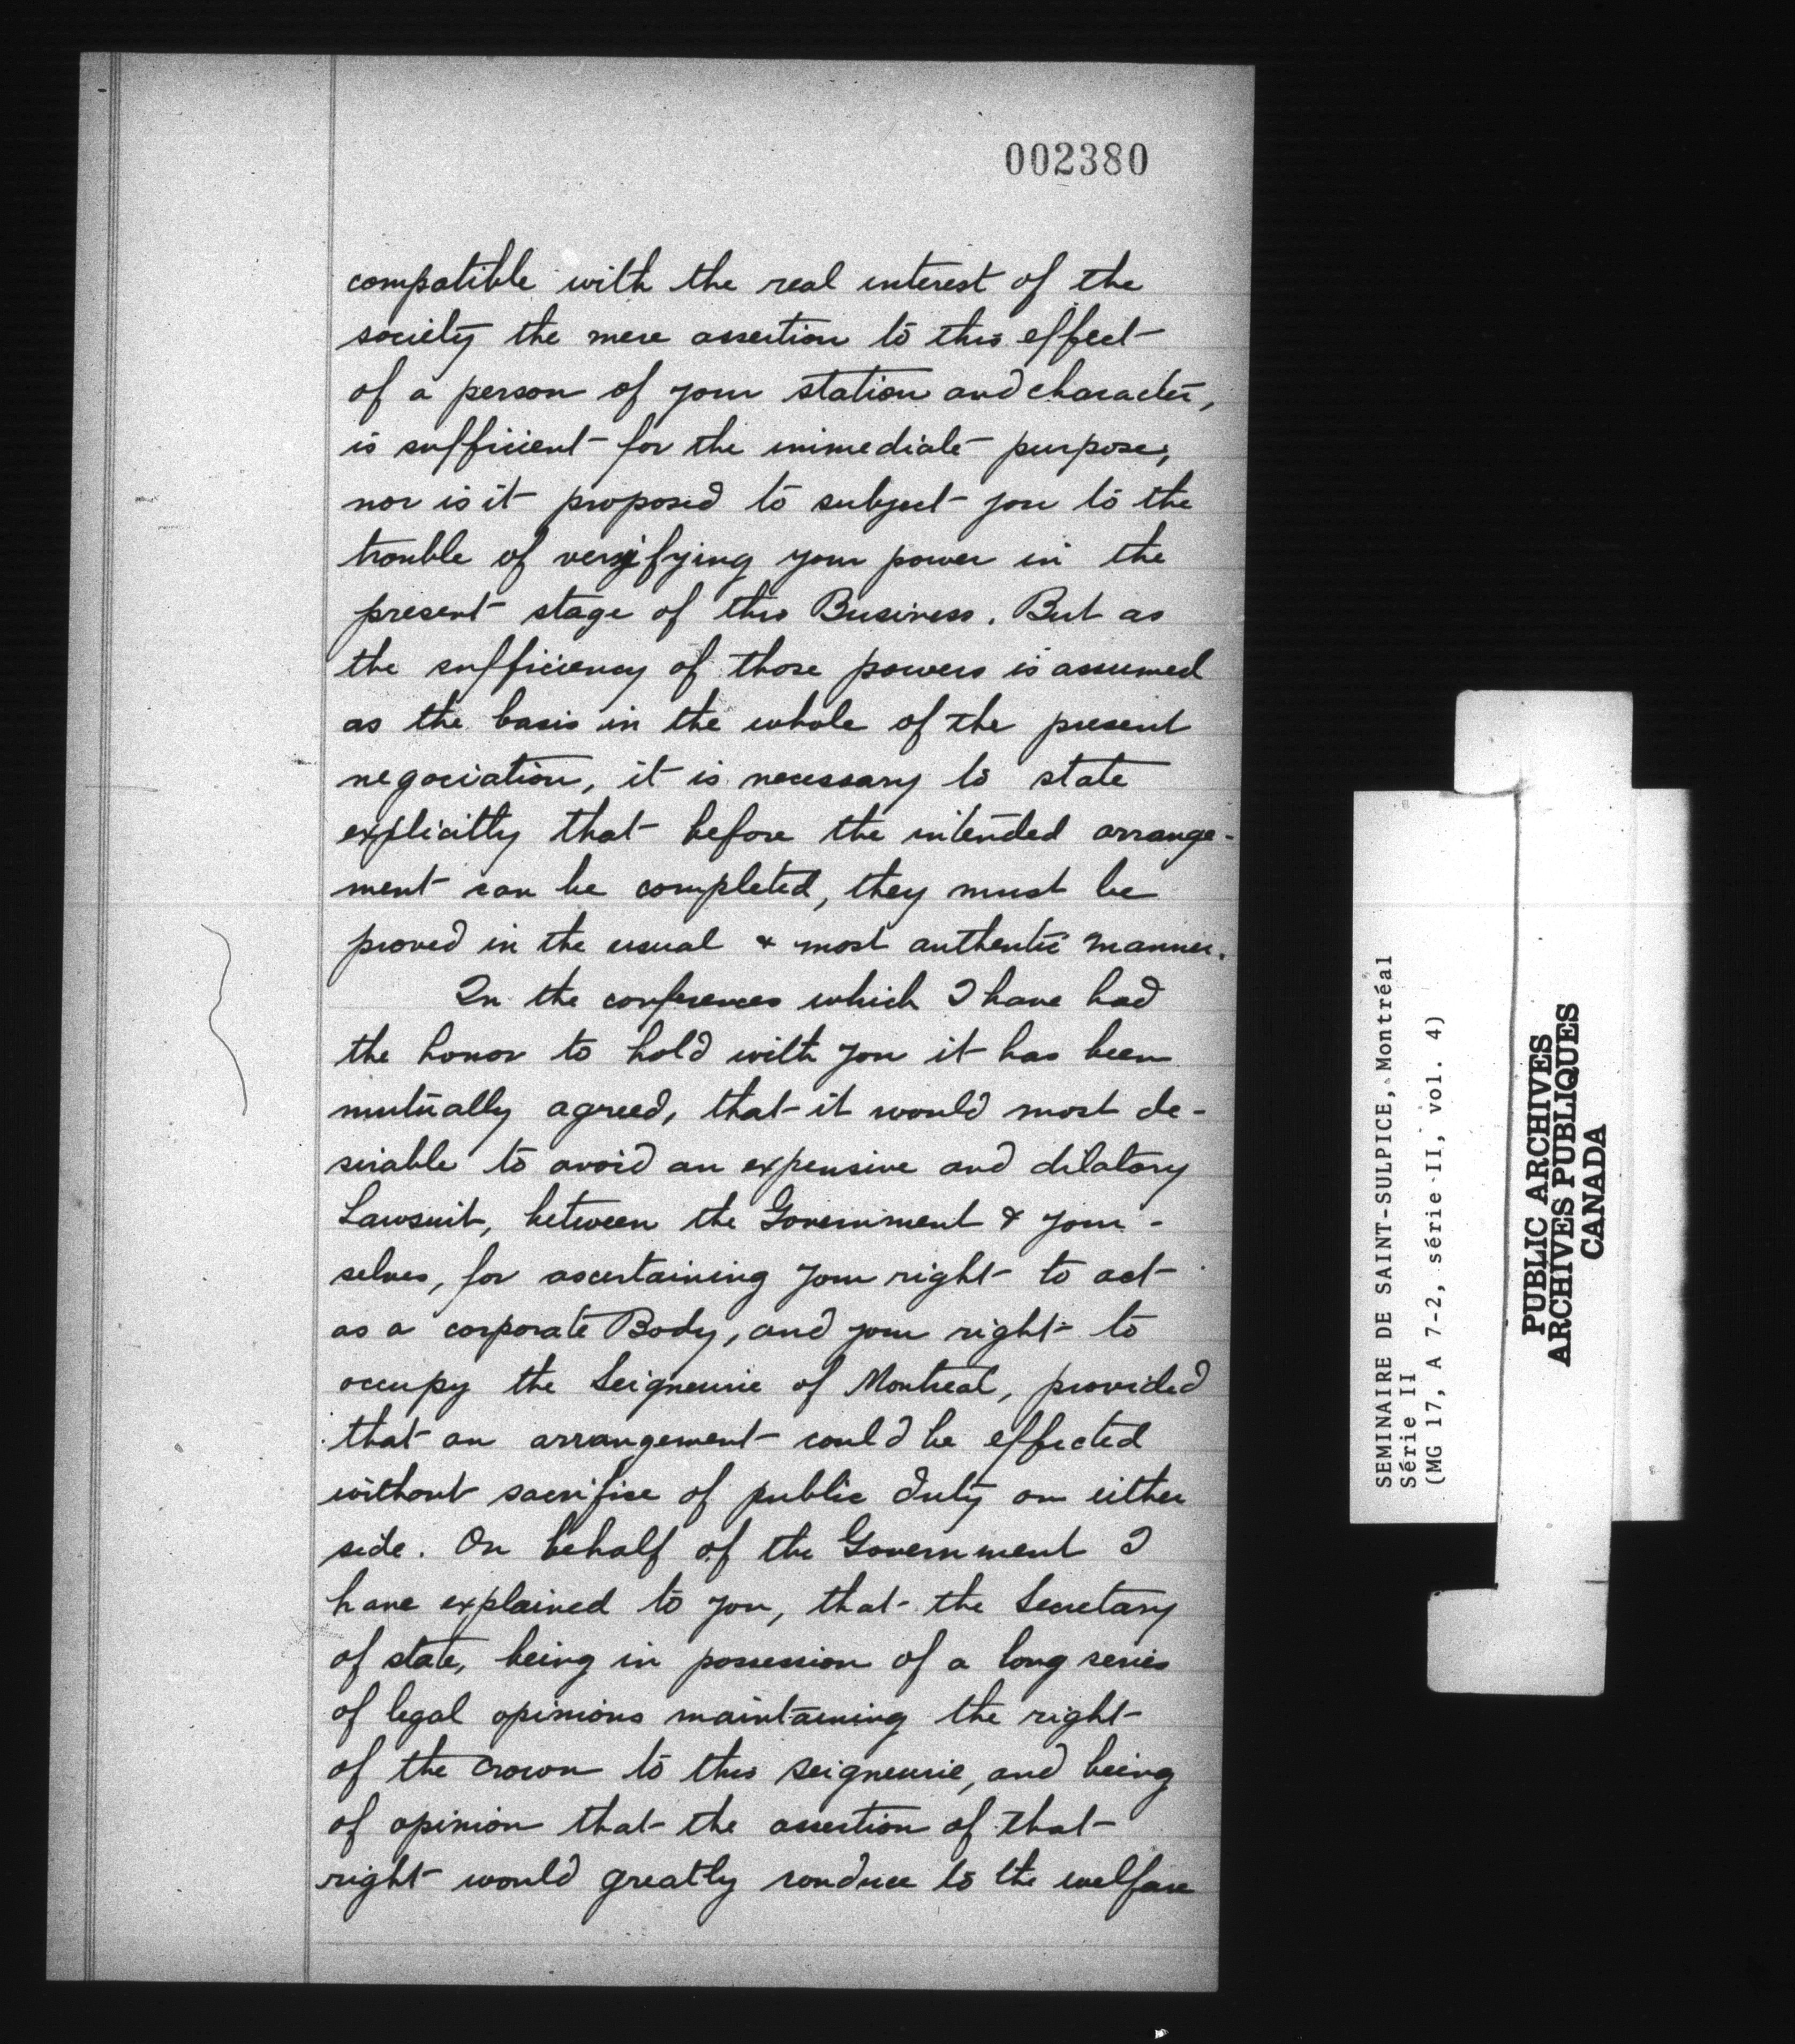 002380
compatible with the real interest of the
society the mere assertion to this effect
of a person of your station and character,
is sufficient for the immediate purpose,
nor is it proposed to subject you to the
trouble of verifying your power in the
present stage of this Business. But as
the sufficiency of those powers is assumed
as the basis in the whole of the present
negociation, it is necessary to state
explicitly that before the intended arrange-
ment can be completed, they must be
proved in the usual & most authentic manner.
In the conferences which I have had
the honor to hold with you it has been
mutually agreed, that it would most de-
sirable to avoid an expensive and dilatory
Lawsuit, between the Government & your-
selves, for ascertaining your right to act
as a corporate Body, and your right to
occupy the Seigneurie of Montreal, provided
that an arrangement could be effected
without sacrifice of public duty on either
side. On behalf of the Government I
have explained to you, that the Secretary
of state, being in possession of a long series
of legal opinions maintaining the right
of the Crown to this Seigneurie, and being
of opinion that the assertion of that
right would greatly conduce to the welfare
SEMINAIRE DE SAINT-SULPICE, Montréal
Série II
(MG 17, A 7-2, série II, vol. 4)
PUBLIC ARCHIVES
ARCHIVES PUBLIQUES
CANADA